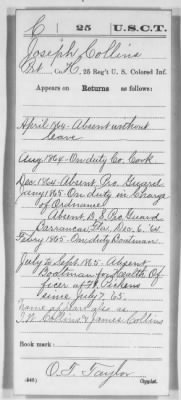 C | 25 | U.S.C.T.
Joseph Collins
Pvt., Co. C, 25 Reg't U. S. Colored Inf.
Appears on Returns as follows:
April 1864 - Absent without
leave
Aug 1864 - On duty Co. Cook.
Dec. 1864 - Absent, Pro. Guard
Jany 1865 - On duty in Charge
of Ordnance
Absent B. & Pro Guard
Barrancas, Fla. Dec. 6, 64
Feby 1865 - On duty Boatman.
July to Sept. 1865 - Absent
Boatman for Health Of-
ficer at Ft. Pickens
since July 7, 65.
Name appears also as
J.W. Collins & James Collins
Book mark:
O. T. Taylor
(546) Copyist.